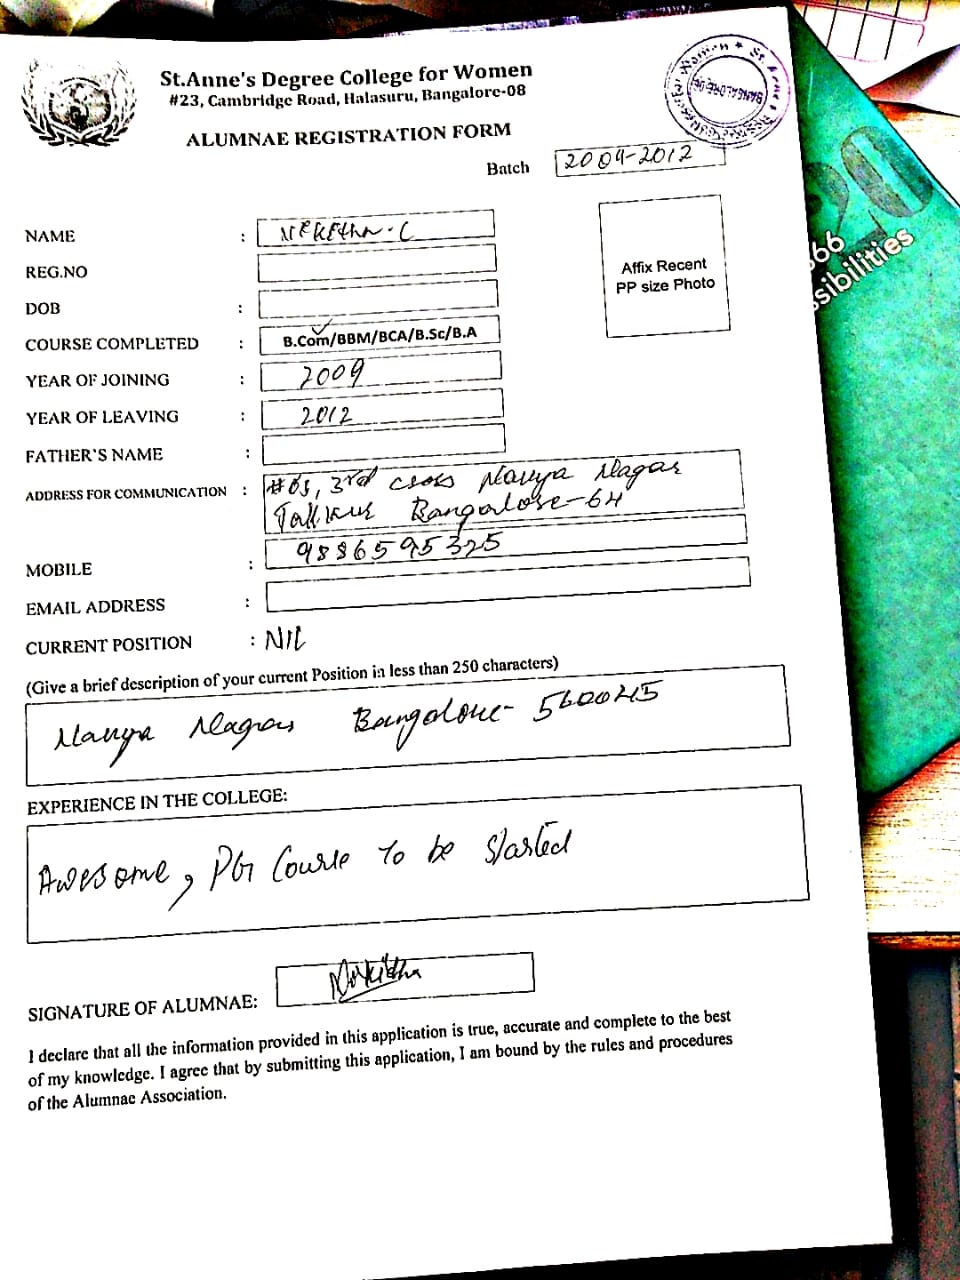 St.Anne's Degree College for Women
#23, Cambridge Road, Halasuru, Bangalore-08
ALUMNAE REGISTRATION FORM
Batch 2009-2012
NAME : Nikitha.C
REG.NO
DOB :
Affix Recent
PP size Photo
COURSE COMPLETED : B.Com/BBM/BCA/B.Sc/B.A
YEAR OF JOINING : 2009
YEAR OF LEAVING : 2012
FATHER'S NAME :
ADDRESS FOR COMMUNICATION : 3rd cross Nagar
Bangalore-64
MOBILE : 9886595325
EMAIL ADDRESS :
CURRENT POSITION : NIL
(Give a brief description of your current Position in less than 250 characters)
Bangalore- 560045
EXPERIENCE IN THE COLLEGE:
Awesome, PG Course To be Started
SIGNATURE OF ALUMNAE: Nikitha
I declare that all the information provided in this application is true, accurate and complete to the best
of my knowledge. I agree that by submitting this application, I am bound by the rules and procedures
of the Alumnae Association.
66
sibilities